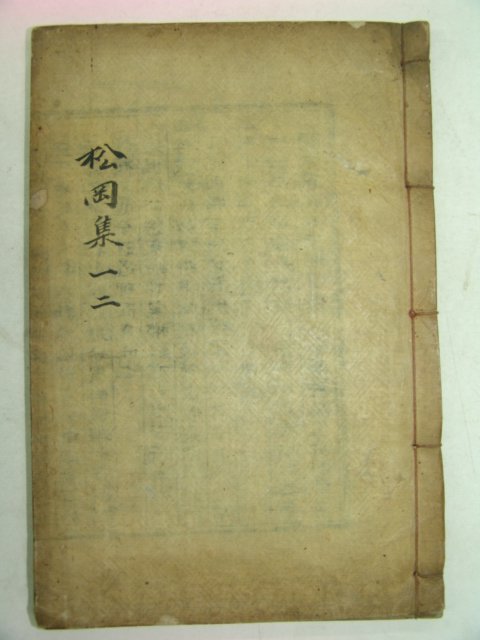 松岡集 一二